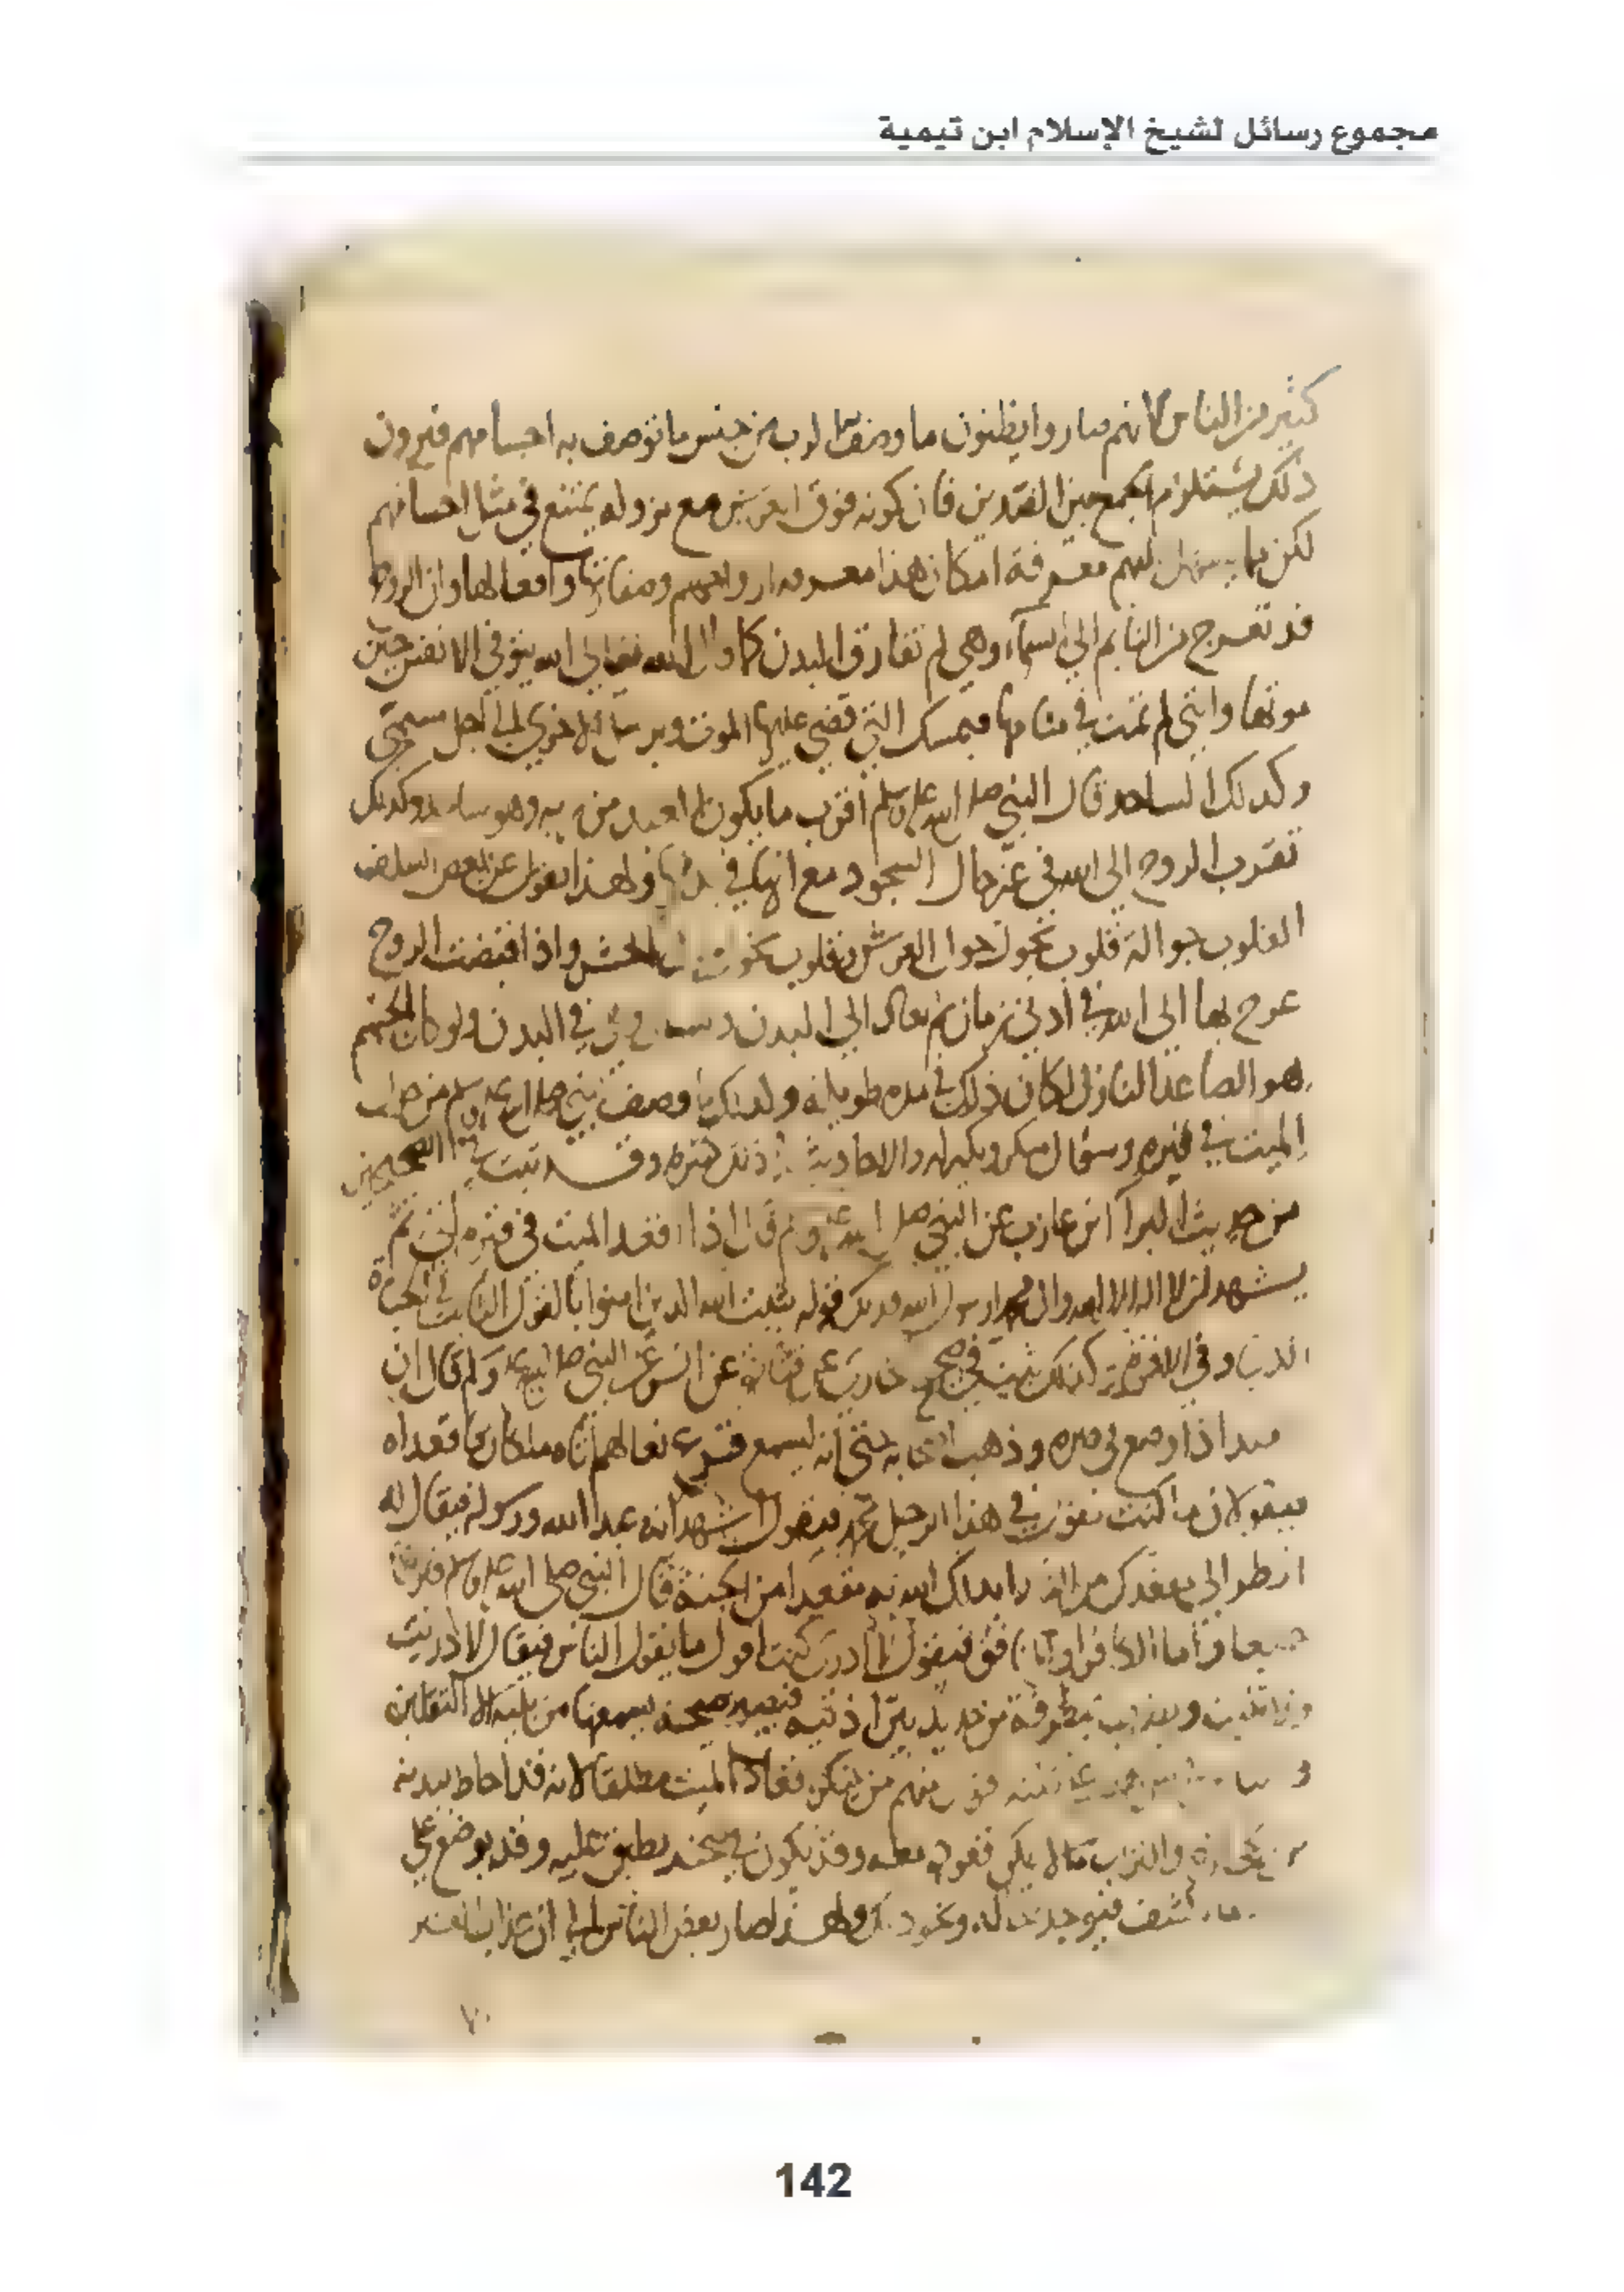 مجموع رسائل لشيخ الإسلام ابن تيمية
كثير من الناس لانهم صاروا يظنون ما وصف به الرب من جنس ما توصف به اجسامهم فيرون
ذلك يستلزم الجمع بين الضدين فان كونه فوق العرش مع نزوله يمتنع في مثل اجسامهم
لكن مما يسهل عليهم معرفة امكان هذا معرفة ارواحهم وصفاتها وافعالها وان الروح
قد تعرج من النايم الى السمآء وهي لم تفارق البدن كما قال الله تعالى الله يتوفى الانفس حين
موتها والتي لم تمت في منامها فيمسك التي قضى عليها الموت ويرسل الاخرى الى اجل مسمى
وكذلك الساجد قال النبي صلى الله عليه وسلم اقرب ما يكون العبد من ربه وهو ساجد وكذلك
تقرب الروح الى الله في غير حال السجود مع انها في بدنها ولهذا يقول بعض السلف
القلوب جوالة قلوب تجول حول العرش وقلوب تجول حول الحش واذا قبضت الروح
عرج بها الى الله في ادنى زمان ثم تعاد الى البدن في البدن ولو كان الجسم
هو الصاعد النازل لكان ذلك في مدة طويلة وكذلك ما وصف النبي صلى الله عليه وسلم من حال
الميت في قبره وسؤال منكر ونكير له والاحاديث في ذلك كثيرة وقد ثبت في الصحيحين
من حديث البرآ ابن عازب عن النبي صلى الله عليه وسلم قال اذا اقعد الميت في قبره اتي ثم
يشهد ان لا اله الا الله وان محمدا رسول الله فذلك قوله يثبت الله الذين امنوا بالقول الثابت في الحياة
الدنيا وفي الاخرة وكذلك ثبت في صحيح عن قتادة عن انس عن النبي صلى الله عليه وسلم قال ان
العبد اذا وضع في قبره وذهب اصحابه حتى انه ليسمع قرع نعالهم اتاه ملكان فاقعداه
فيقولان ما كنت تقول في هذا الرجل محمد فيقول اشهد انه عبد الله ورسوله فيقال له
انظر الى مقعدك من النار ابدلك الله به مقعدا من الجنة قال النبي صلى الله عليه وسلم فيراهما
جميعا واما الكافر او المنافق فيقول لا ادري كنت اقول ما يقول الناس فيقال لا دريت
ولا تليت ويضرب بمطرقة من حديد بين اذنيه فيصيح صيحة يسمعها من يليه الا الثقلين
فمنهم من ينكر قعاد الميت مطلقا لانه قد احاط ببدنه
من الحجارة والتراب ما لا يمكن قعوده معه وقد يكون في صخر يطبق عليه وقد يوضع على
فيوجد بحاله ونحو ذلك ولهذا صار بعض الناس الى ان عذاب القبر
٧٠
142